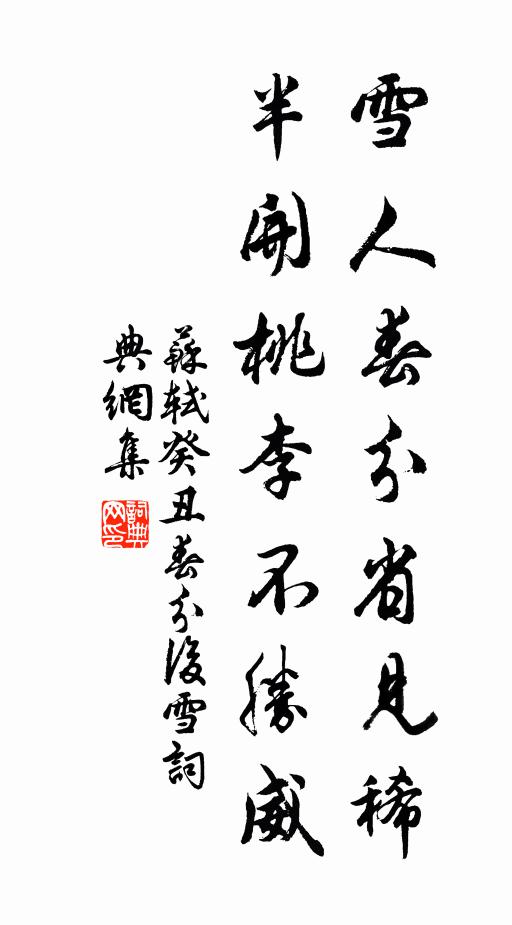 雪人春分省見稀
半開桃李不勝威
蘇軾癸丑春分後雪詞
典網集
詞典网印